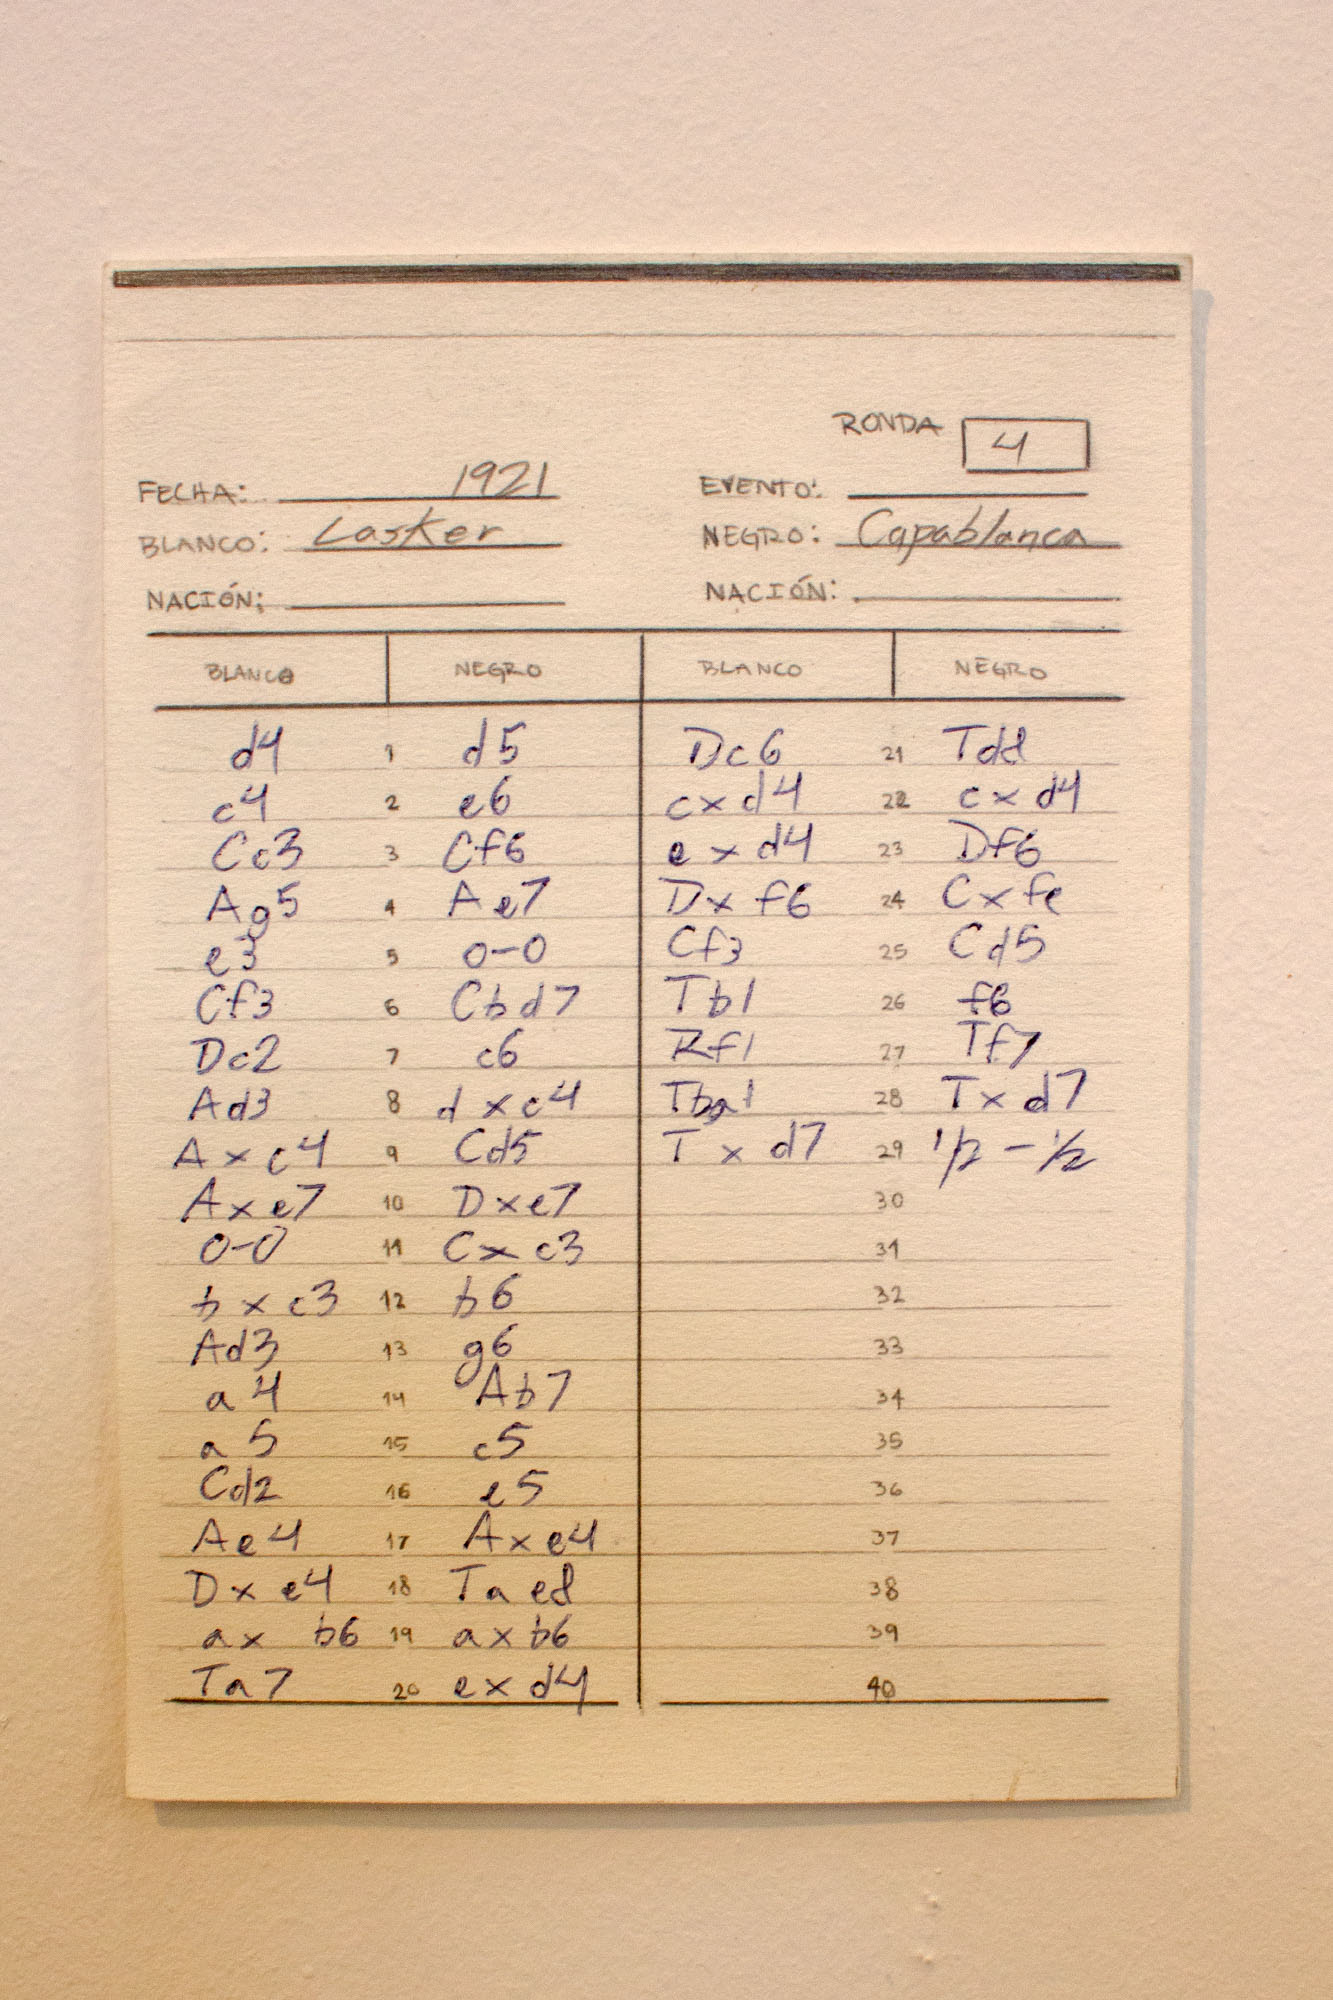 RONDA 4
FECHA: 1921 EVENTO:
BLANCO: Lasker NEGRO: Capablanca
NACIÓN: NACIÓN:
BLANCO NEGRO BLANCO NEGRO
d4 1 d5 Dc6 21 Td8
c4 2 e6 cxd4 22 cxd4
Cc3 3 Cf6 exd4 23 Df6
Ag5 4 Ae7 Dxf6 24 Cxfe
e3 5 0-0 Cf3 25 Cd5
Cf3 6 Cbd7 Tb1 26 f6
Dc2 7 c6 Rf1 27 Tf7
Ad3 8 dxc4 Tba1 28 Txd7
Axc4 9 Cd5 Txd7 29 1/2 - 1/2
Axe7 10 Dxe7 30
0-0 11 Cxc3 31
bxc3 12 b6 32
Ad3 13 g6 33
a4 14 Ab7 34
a5 15 c5 35
Cd2 16 e5 36
Ae4 17 Axe4 37
Dxe4 18 Tae8 38
axb6 19 axb6 39
Ta7 20 exd4 40